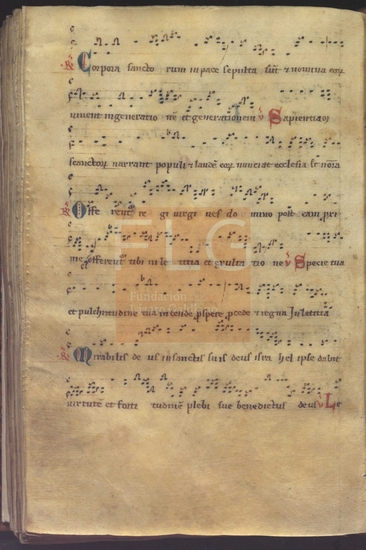 ℟ Corpora sancto rum in pace sepulta sūt & nomina eoꝝ
uiuent in generatio nē et generationem ℣ Sapientiā
sanctoꝝ narrant populi & laudē eoꝝ nunciat ecclesia Et nōīa
℟ Offe rentur re gi uirgi nes do mino post eam pri
me offerentur tibi in le titia et exulta tio ne ℣ Specie tua
et pulchritudine tua intende pspere pcede & regna In letitia
FLG
Fundación
℟ Mirabilis de us in sanctis suis deus isra hel ipse dabit
uirtutē et forti tudinē plebi sue benedictus deus ℣ Le